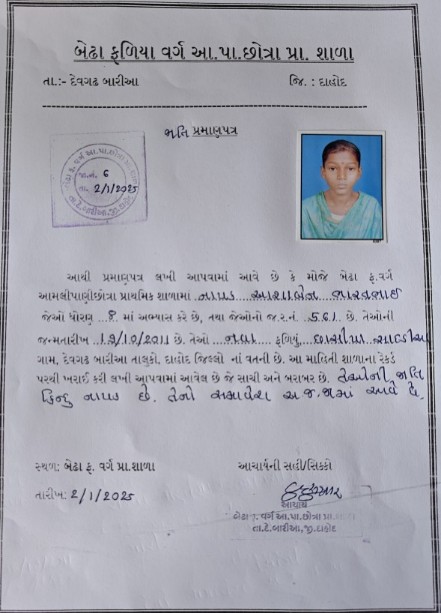 બેઢા ફળિયા વર્ગ આ.પા.છોત્રા પ્રા. શાળા
તા:- દેવગઢ બારીઆ જિ. : દાહોદ
જાતિ પ્રમાણપત્ર
જા.નં. 6
તા. 2/1/2025
તા.દે.બારીઆ,જી.દાહોદ
આથી પ્રમાણપત્ર લખી આપવામાં આવે છે કે મોજે બેઢા ફ.વર્ગ
આમલીપાણીછોત્રા પ્રાથમિક શાળામાં નાયક
જેઓ ધોરણ ...8. માં અભ્યાસ કરે છે, તથા જેઓનો જ.ર.નં. .561. છે. તેઓની
જન્મતારીખ 19/10/2011 છે. તેઓ ફળિયું
ગામ, દેવગઢ બારીઆ તાલુકો, દાહોદ જિલ્લો નાં વતની છે. આ માહિતી શાળાના રેકર્ડ
પરથી ખરાઈ કરી લખી આપવામાં આવેલ છે જે સાચી અને બરાબર છે. તેઓની જાતિ
હિન્દુ નાયક છે. તેનો સમાવેશ અ.જ.જામાં આવે છે.
સ્થળ: બેઢા ફ. વર્ગ પ્રા.શાળા આચાર્યની સહી/સિક્કો
તારીખ: 2/1/2025
આચાર્ય
બેઢા ફ. વર્ગ આ.પા.છોત્રા પ્રા.શાળા
તા.દે.બારીઆ,જી.દાહોદ